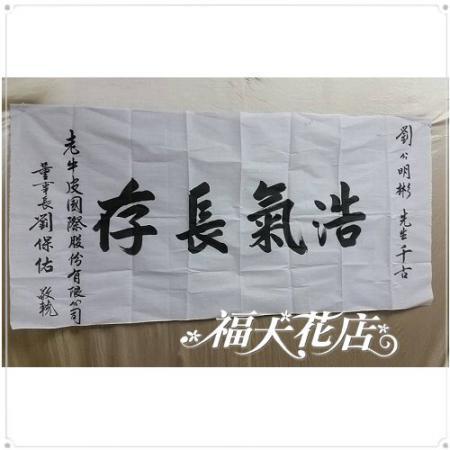 劉公明彬先生千古
浩氣長存
老牛皮國際股份有限公司
董事長劉保佑敬輓
福天花店